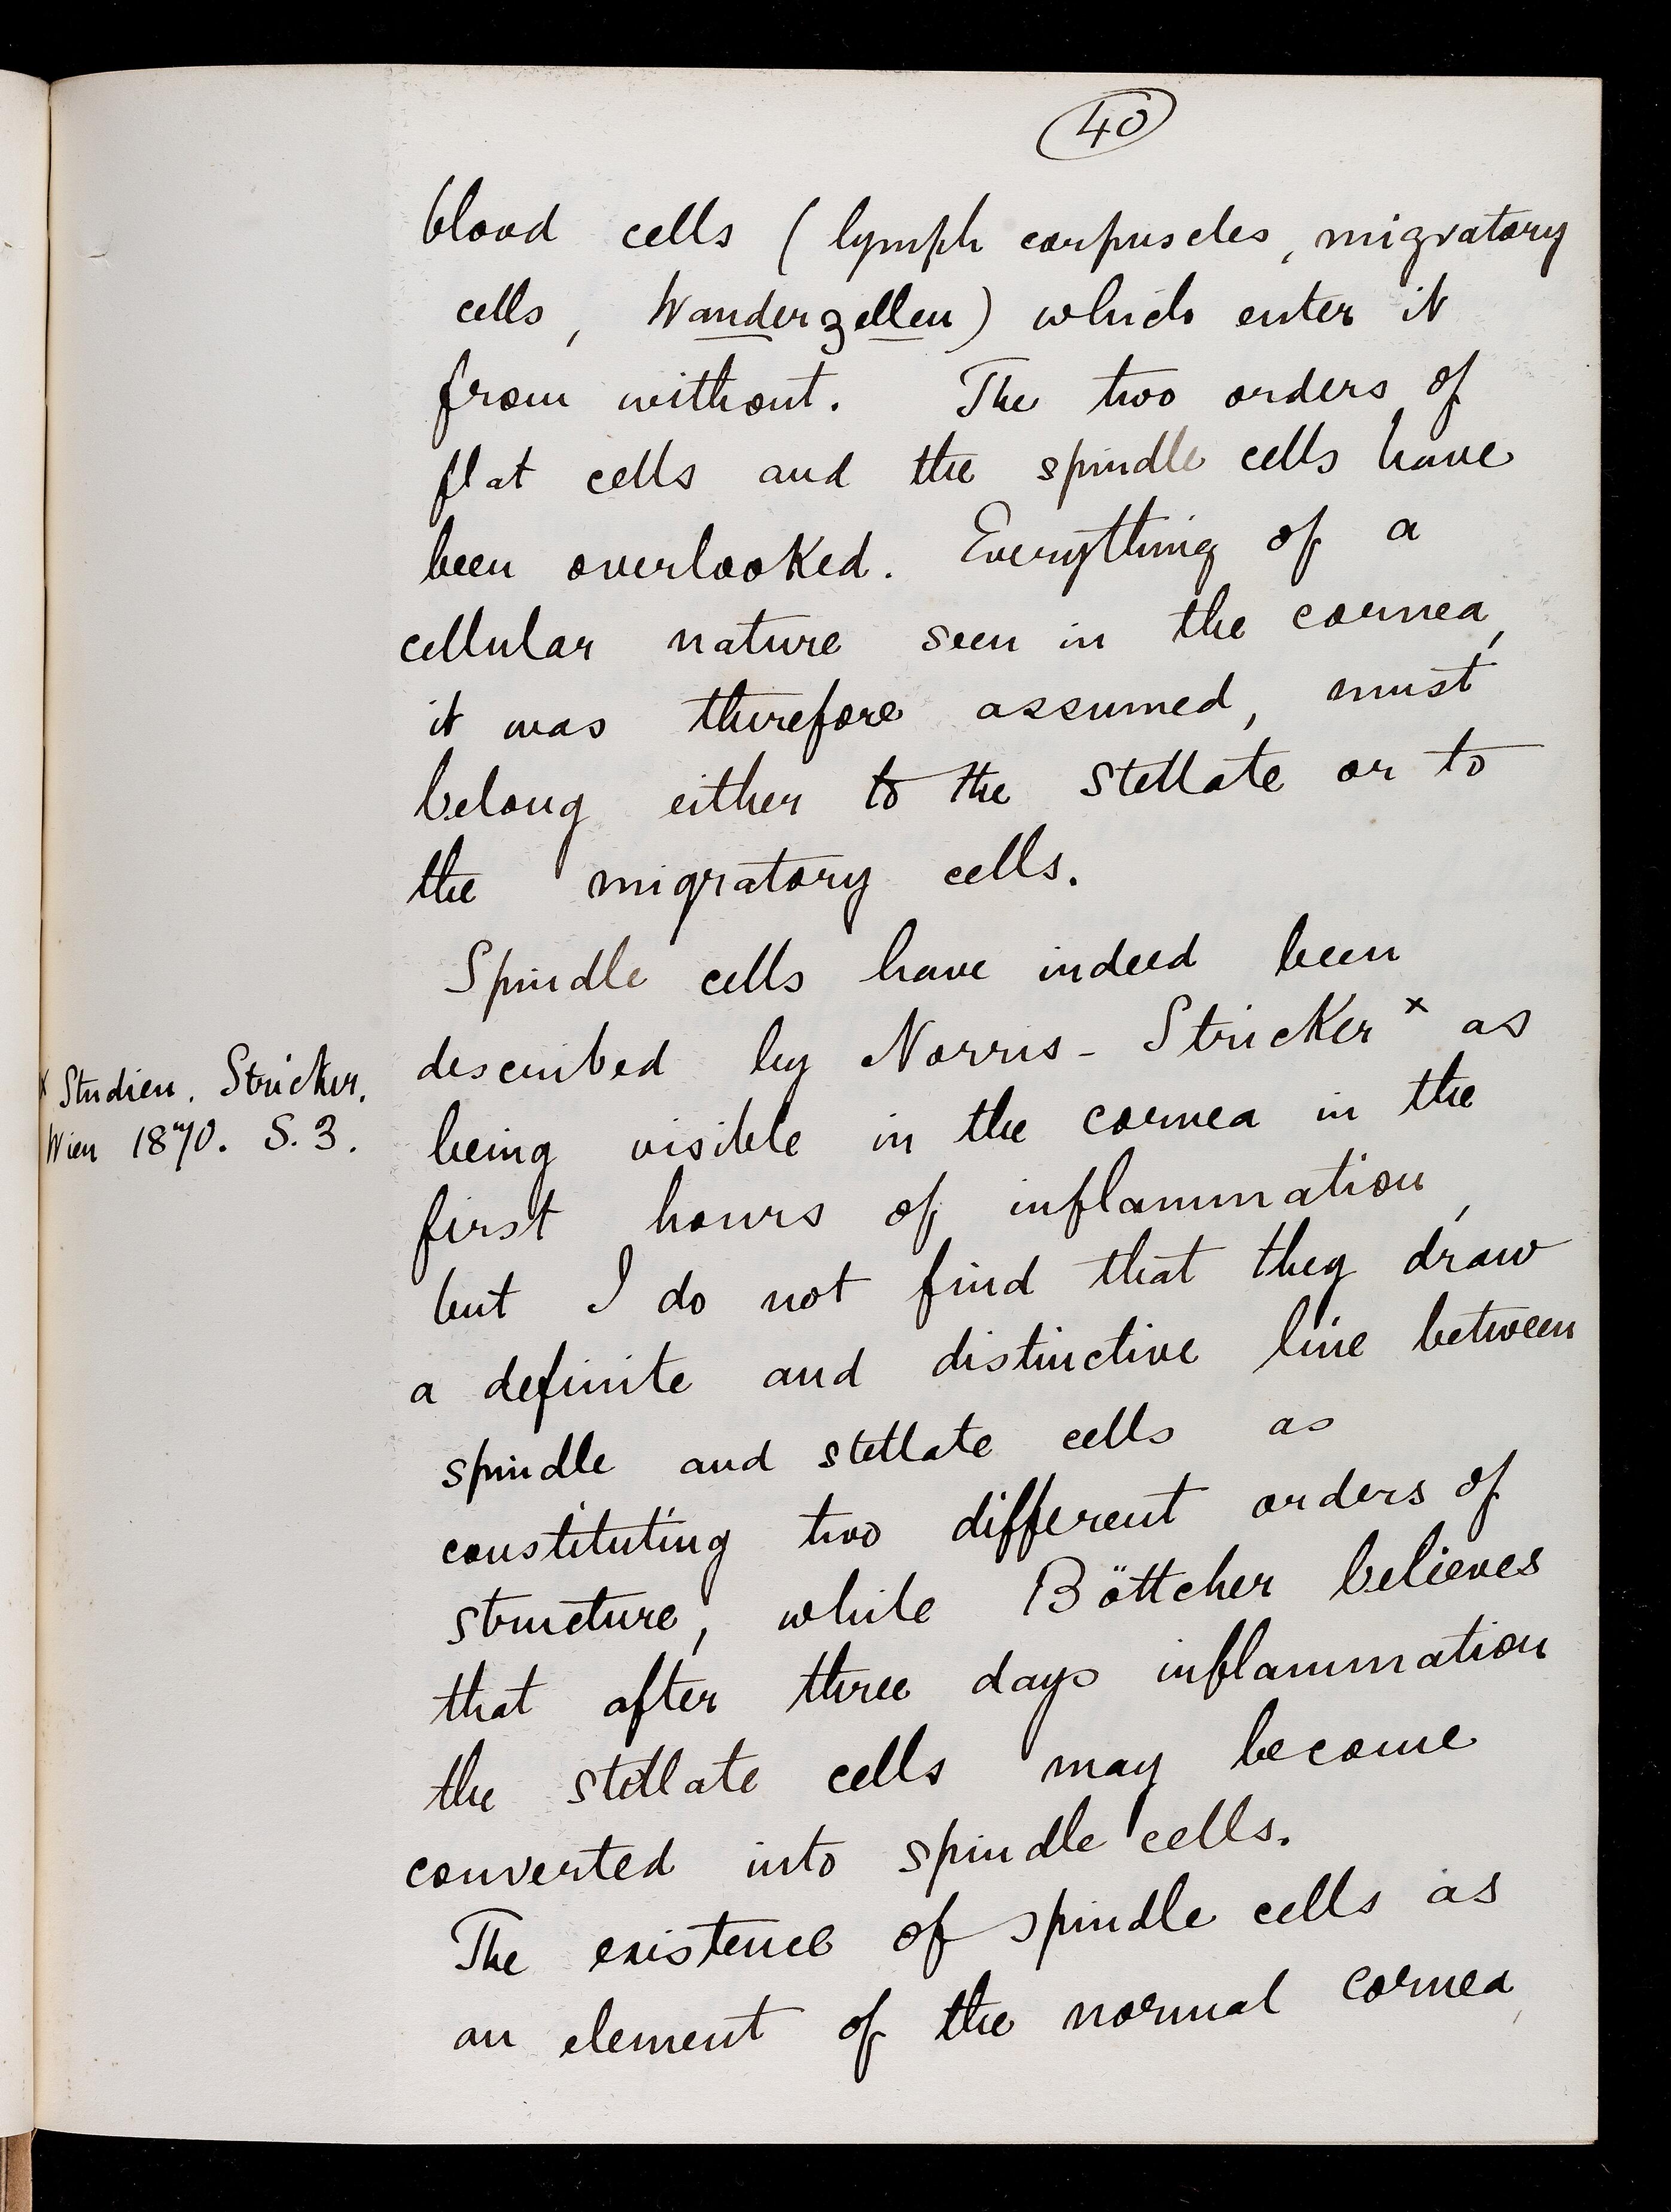 40
blood cells (lymph corpuscles, migratory
cells, Wanderzellen) which enter it
from without. The two orders of
flat cells and the spindle cells have
been overlooked. Everything of a
cellular nature seen in the cornea,
it was therefore assumed, must
belong either to the stellate or to
the migratory cells.
Spindle cells have indeed been
described by Norris - Stricker x as
x Studien. Stricker.
Wien 1870. S. 3.
being visible in the cornea in the
first hours of inflammation,
but I do not find that they draw
a definite and distinctive line between
spindle and stellate cells as
constituting two different orders of
structure, while Böttcher believes
that after three days inflammation
the stellate cells may become
converted into spindle cells.
The existence of spindle cells as
an element of the normal cornea,